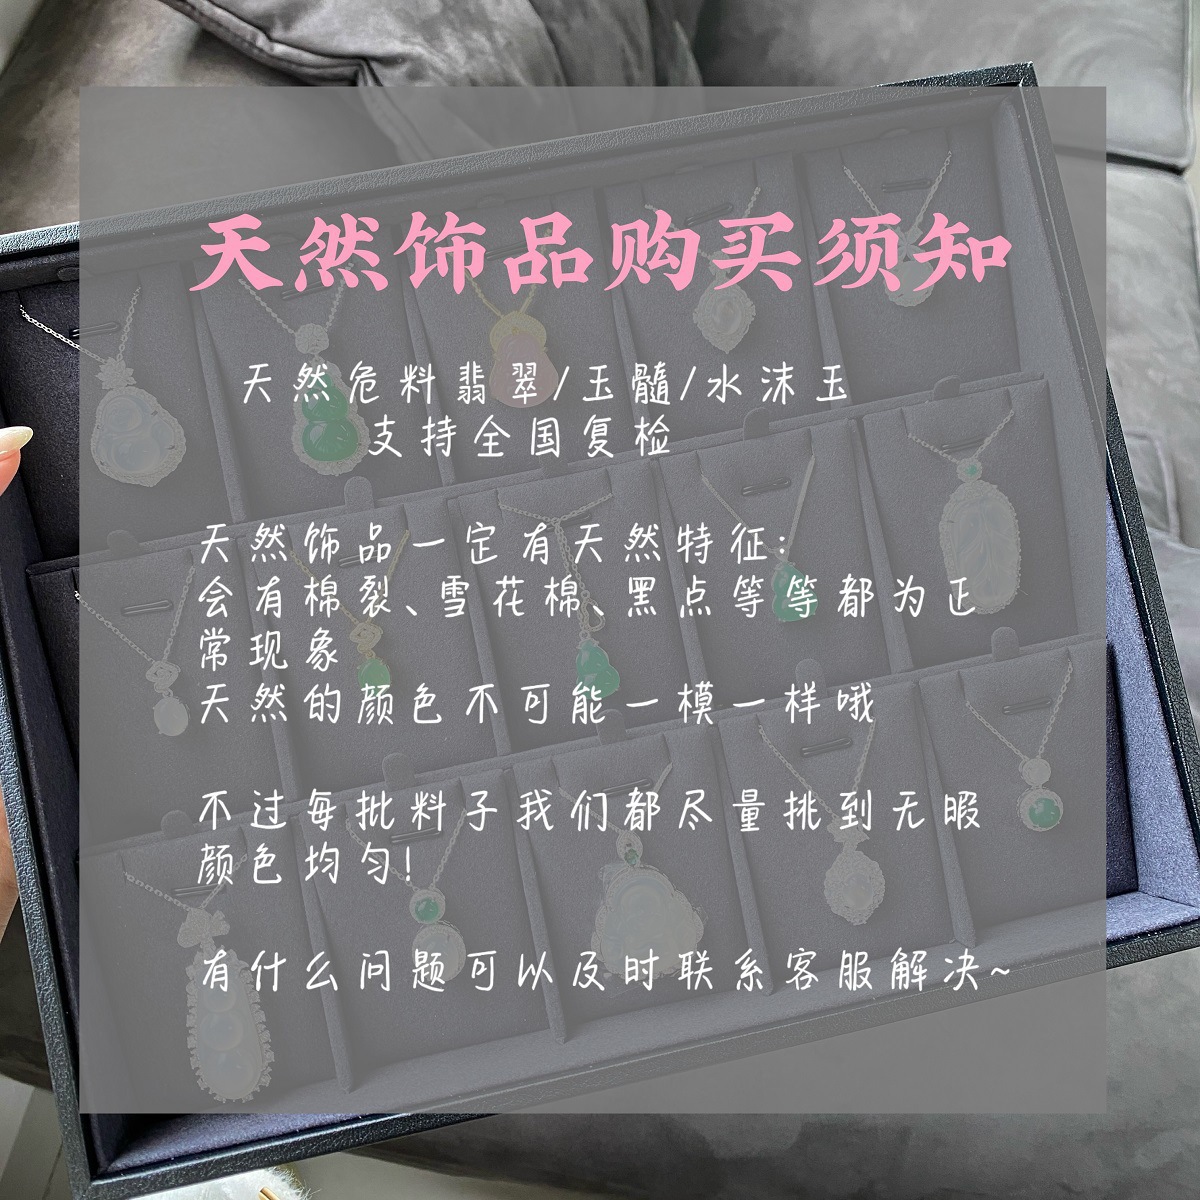 天然饰品购买须知
天然危料翡翠/玉髓/水沫玉
支持全国复检
天然饰品一定有天然特征:
会有棉裂、雪花棉、黑点等等都为正
常现象
天然的颜色不可能一模一样哦
不过每批料子我们都尽量挑到无暇
颜色均匀!
有什么问题可以及时联系客服解决~